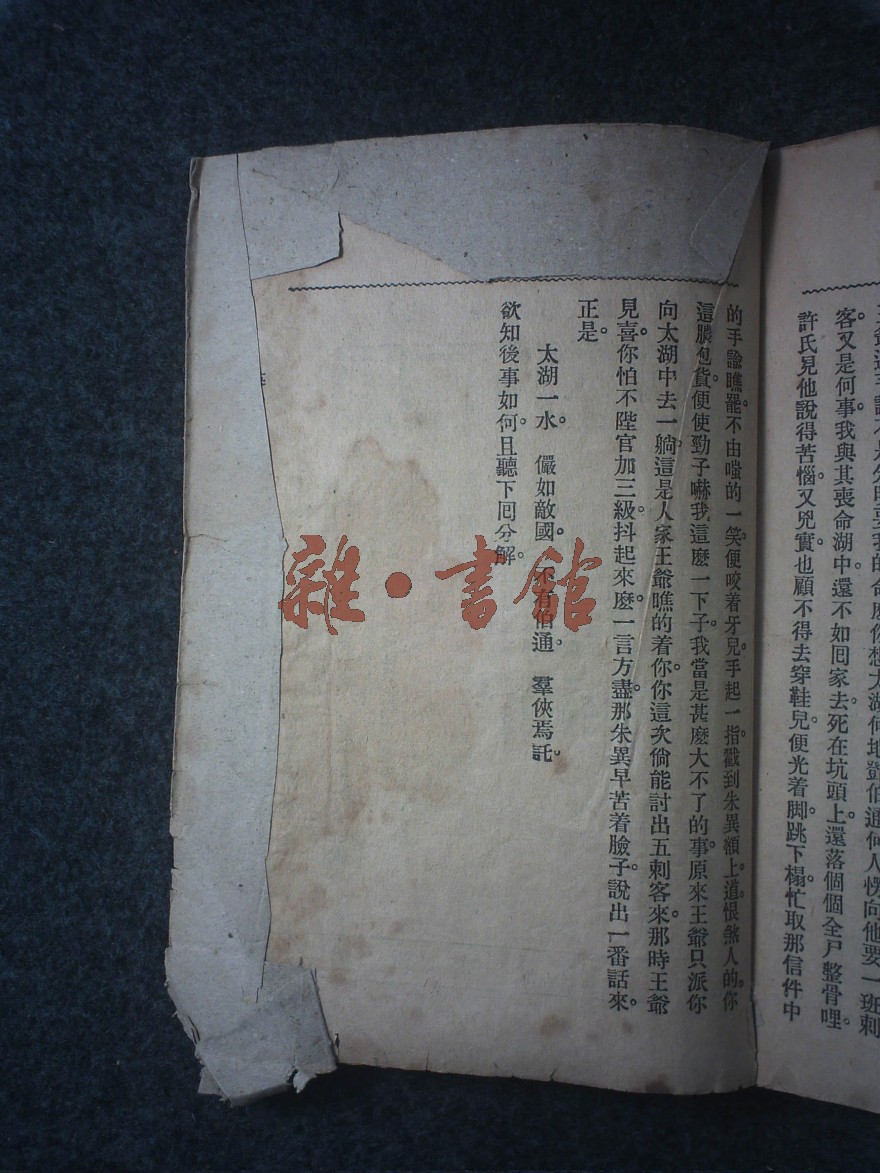 不是分明要我的命麽你想太湖何地鄧伯通何人愣向他要一班刺
客又是何事。我與其喪命湖中。還不如囘家去。死在坑頭上。還落個個全尸整骨哩。
許氏見他說得苦惱。又兇實。也顧不得去穿鞋兒。便光着脚。跳下榻。忙取那信件中
的手諭瞧罷。不由嗤的一笑。便咬着牙兒。手起一指。戳到朱異額上。道恨煞人的。你
這膿包貨。便使勁子嚇我這麽一下子。我當是甚麽大不了的事。原來王爺只派你
向太湖中去一躺。這是人家王爺瞧的着你。你這次倘能討出五刺客來。那時王爺
見喜。你怕不陞官加三級。抖起來麽。一言方盡。那朱異早苦着臉子。說出一番話來。
正是。
太湖一水。　儼如敵國。　不有伯通。　羣俠焉託。
欲知後事如何。且聽下囘分解。
雜·書館